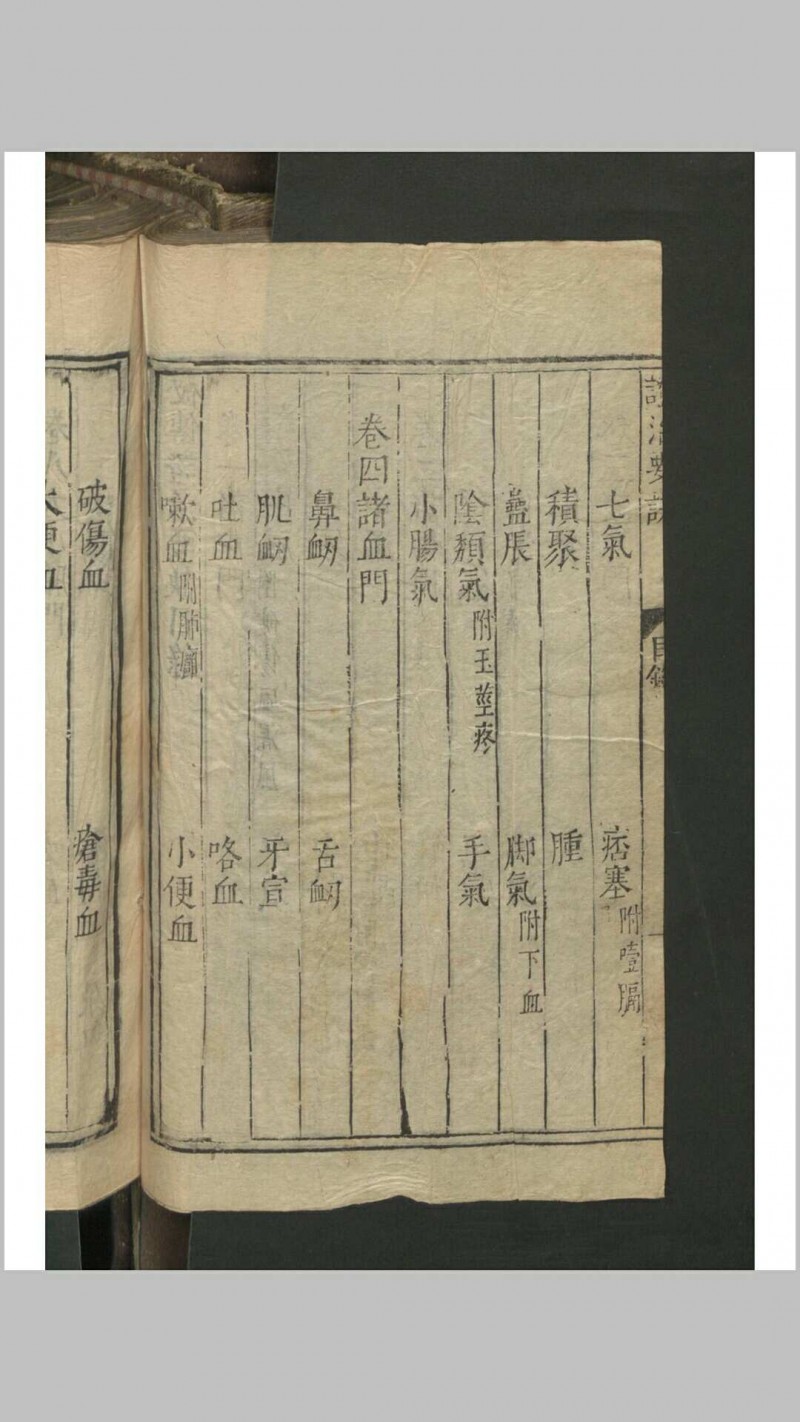 證治要訣 目錄 一
七氣 痞塞附噎膈
積聚 腫
蠱脹 脚氣附下血
陰頹氣附玉莖疼 手氣
小腸氣
卷四諸血門
鼻衂 舌衂
肌衂 牙宣
吐血 咯血
嗽血附肺 小便血
破傷血 瘡毒血
大便血